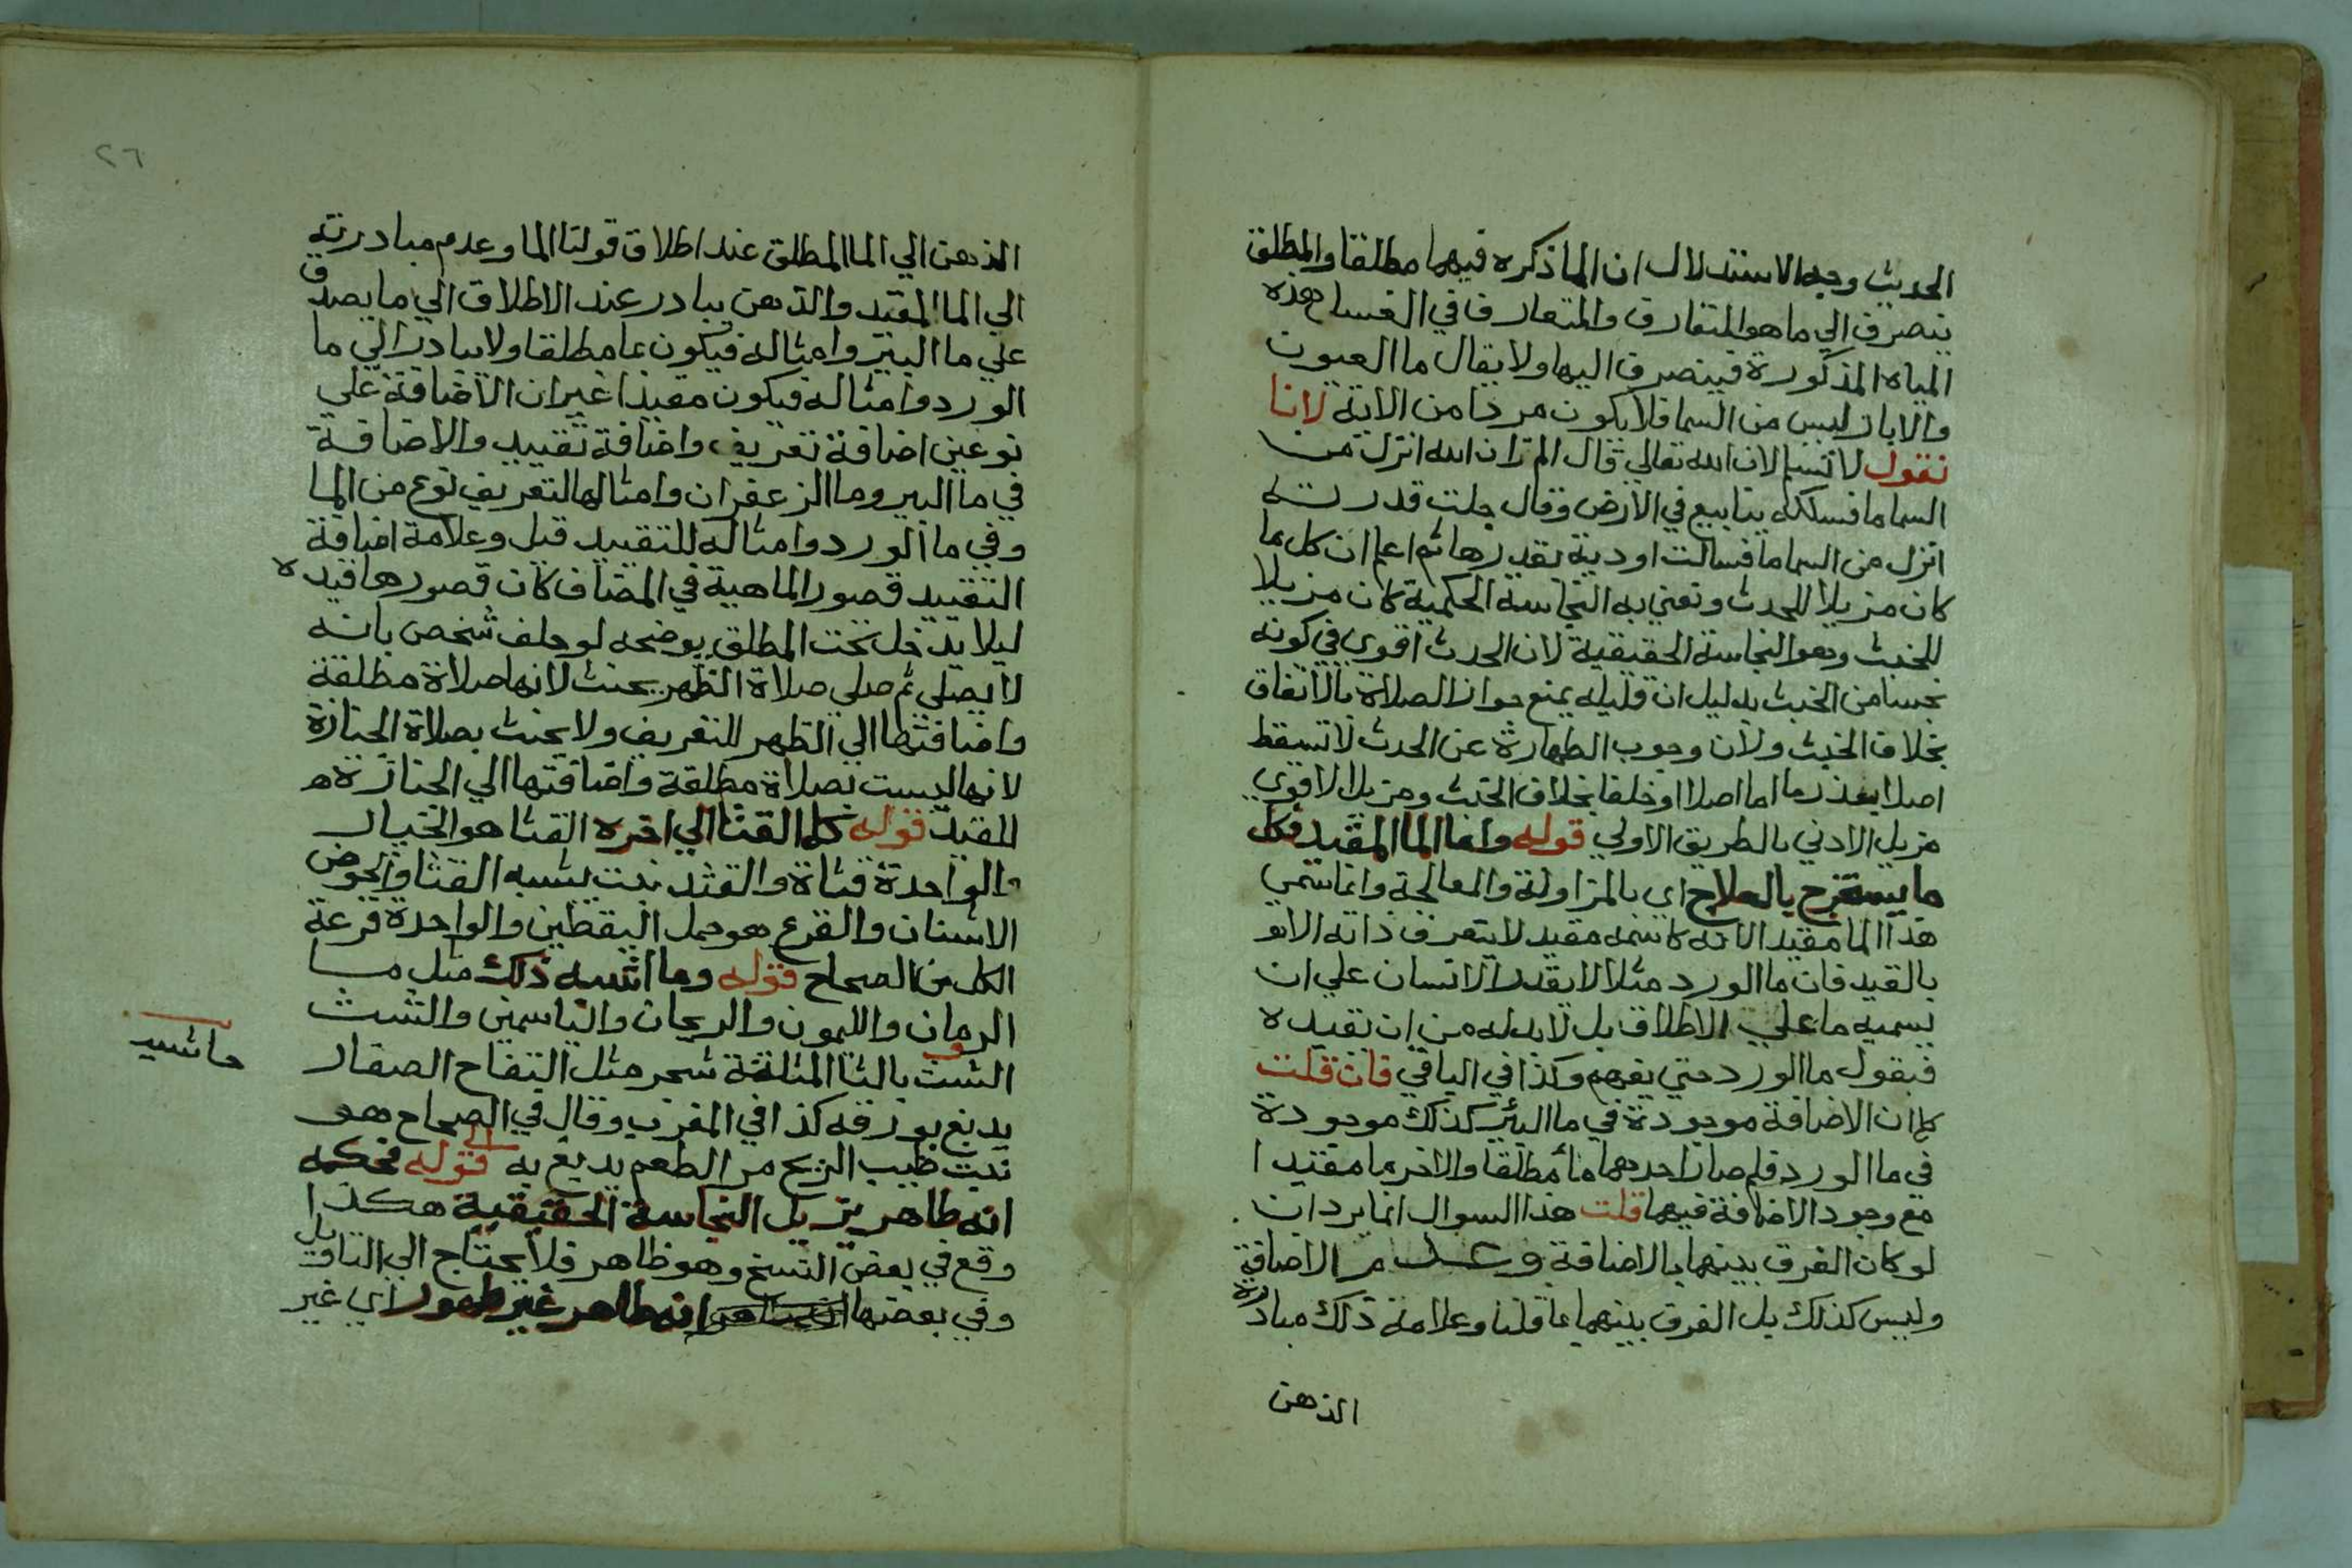 الحديث وجه الاستدلال ان الما ذكره فيهما مطلقا والمطلق
ينصرف الي ما هو المتعارف والمتعارف في الغسل هذه
المياه المذكورة فينصرف اليها ولا يقال ما العيون
والابار ليس من السما فلا يكون مردا من الاية لانا
نقول لا نسلم لان الله تعالي قال الم تر ان الله انزل من
السما ما فسلكه ينابيع في الارض وقال جلت قدرته
انزل من السما ما فسالت اودية بقدرها ثم اعلم ان كل ما
كان مزيلا للحدث ونعني به النجاسة الحكمية كان مزيلا
للخبث وهو النجاسة الحقيقية لان الحدث اقوي في كونه
نجسا من الخبث بدليل ان قليله يمنع جواز الصلاة بالاتفاق
بخلاف الخبث ولان وجوب الطهارة عن الحدث لا تسقط
اصلا بعذر ما اما اصلا او خلفا بخلاف الخبث ومزيل الاقوي
مزيل الادني بالطريق الاولي قوله واما الما المقيد فكل
ما يستخرج بالعلاج اي بالمزاولة والمعالجة وانما سمي
هذا الما مقيد الانه كاسمه مقيد لا يتعرف ذاته الا
بالقيد فان ما الورد مثلا لا يقدر الانسان علي ان
يسميه ما علي الاطلاق بل لا بد له من ان نقيده
فيقول ما الورد حتي يفهم وكذا في الباقي فان قلت
كما ان الاضافة موجودة في ما البئر كذلك موجودة
في ما الورد فلم صار احدهما مأ مطلقا والاخر ما مقيدا
مع وجود الاضافة فيهما قلت هذا السوال انما يرد ان
لو كان الفرق بينهما بالاضافة وعدم الاضافة
وليس كذلك بل الفرق بينهما ما قلنا وعلامة ذلك مبادرة
الذهن
٢٦
الذهن الي الما المطلق عند اطلاق قولنا الما وعدم مبادرته
الي الما المقيد والذهن يبادر عند الاطلاق الي ما يصدق
علي ما البئر وامثاله فيكون ما مطلقا ولا يبادر الي ما
الورد وامثاله فيكون مقيدا غير ان الاضافة علي
نوعين اضافة تعريف واضافة تقييد والاضافة
في ما البير وما الزعفران وامثالها لتعريف نوع من الما
وفي ما الورد وامثاله للتقييد قيل وعلامة اضافة
التقييد قصور الماهية في المضاف كان قصورها قيده
ليلا يدخل تحت المطلق يوضحه لو حلف شخص بانه
لا يصلي ثم صلي صلاة الظهر يحنث لانها صلاة مطلقة
واضافتها الي الظهر للتعريف ولا يحنث بصلاة الجنازة
لانها ليست بصلاة مطلقة واضافتها الي الجنازة
للتقييد قوله كما القثا الي اخره القثا هو الخيار
والواحدة قثاة والقثد نبت يشبه القثا والحرض
الاشنان والقرع هو حمل اليقطين والواحدة قرعة
الكل من الصحاح قوله وما اشبه ذلك مثل ما
الرمان والليمون والريحان والياسمين والشث
الشث بالثا المثلثة شجر مثل التفاح الصغار
حاشيه
يدبغ بورقه كذا في المغرب وقال في الصحاح هو
نبت طيب الريح مر الطعم يدبغ به قوله فحكمه
انه طاهر يزيل النجاسة الحقيقية هكذا
وقع في بعض النسخ وهو ظاهر فلا يحتاج الي التاويل
وفي بعضها انه طاهر غير طهور اي غير